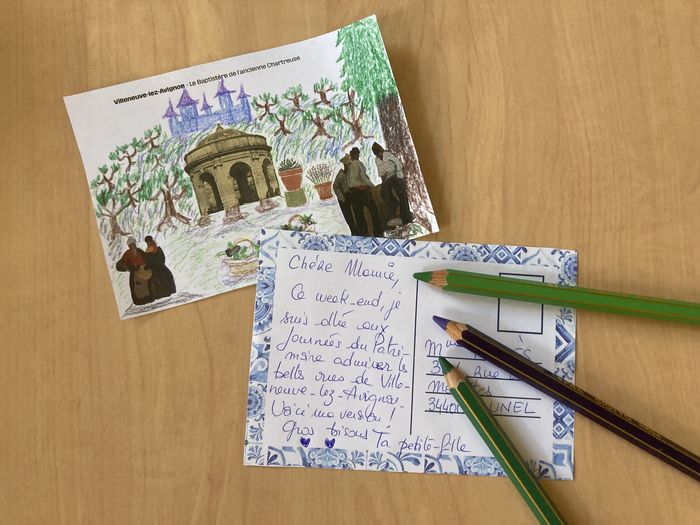 Villeneuve-lez-Avignon - Le Baptistère de l'ancienne Chartreuse
Chère Mamie,
Ce week-end, je
suis allée aux
Journées du Patri-
moine admirer les
belles rues de Ville-
neuve-lez-Avignon.
Voici ma version !
Gros bisous Ta petite-fille
à
Mme
3
Rue
34400 LUNEL